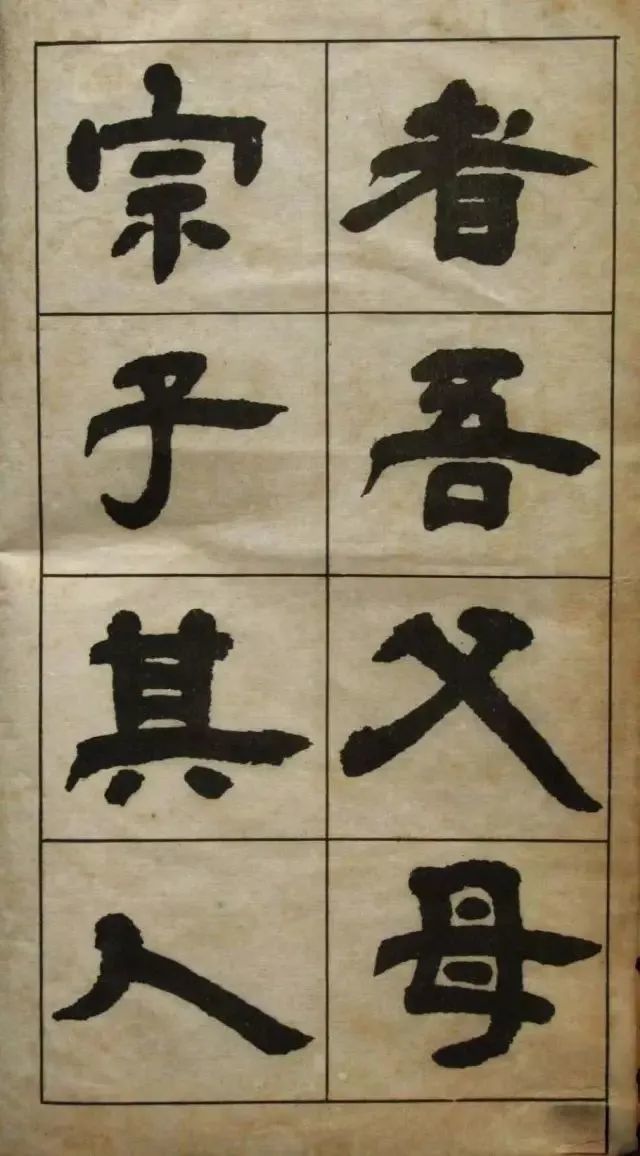 者吾父母
宗子其人